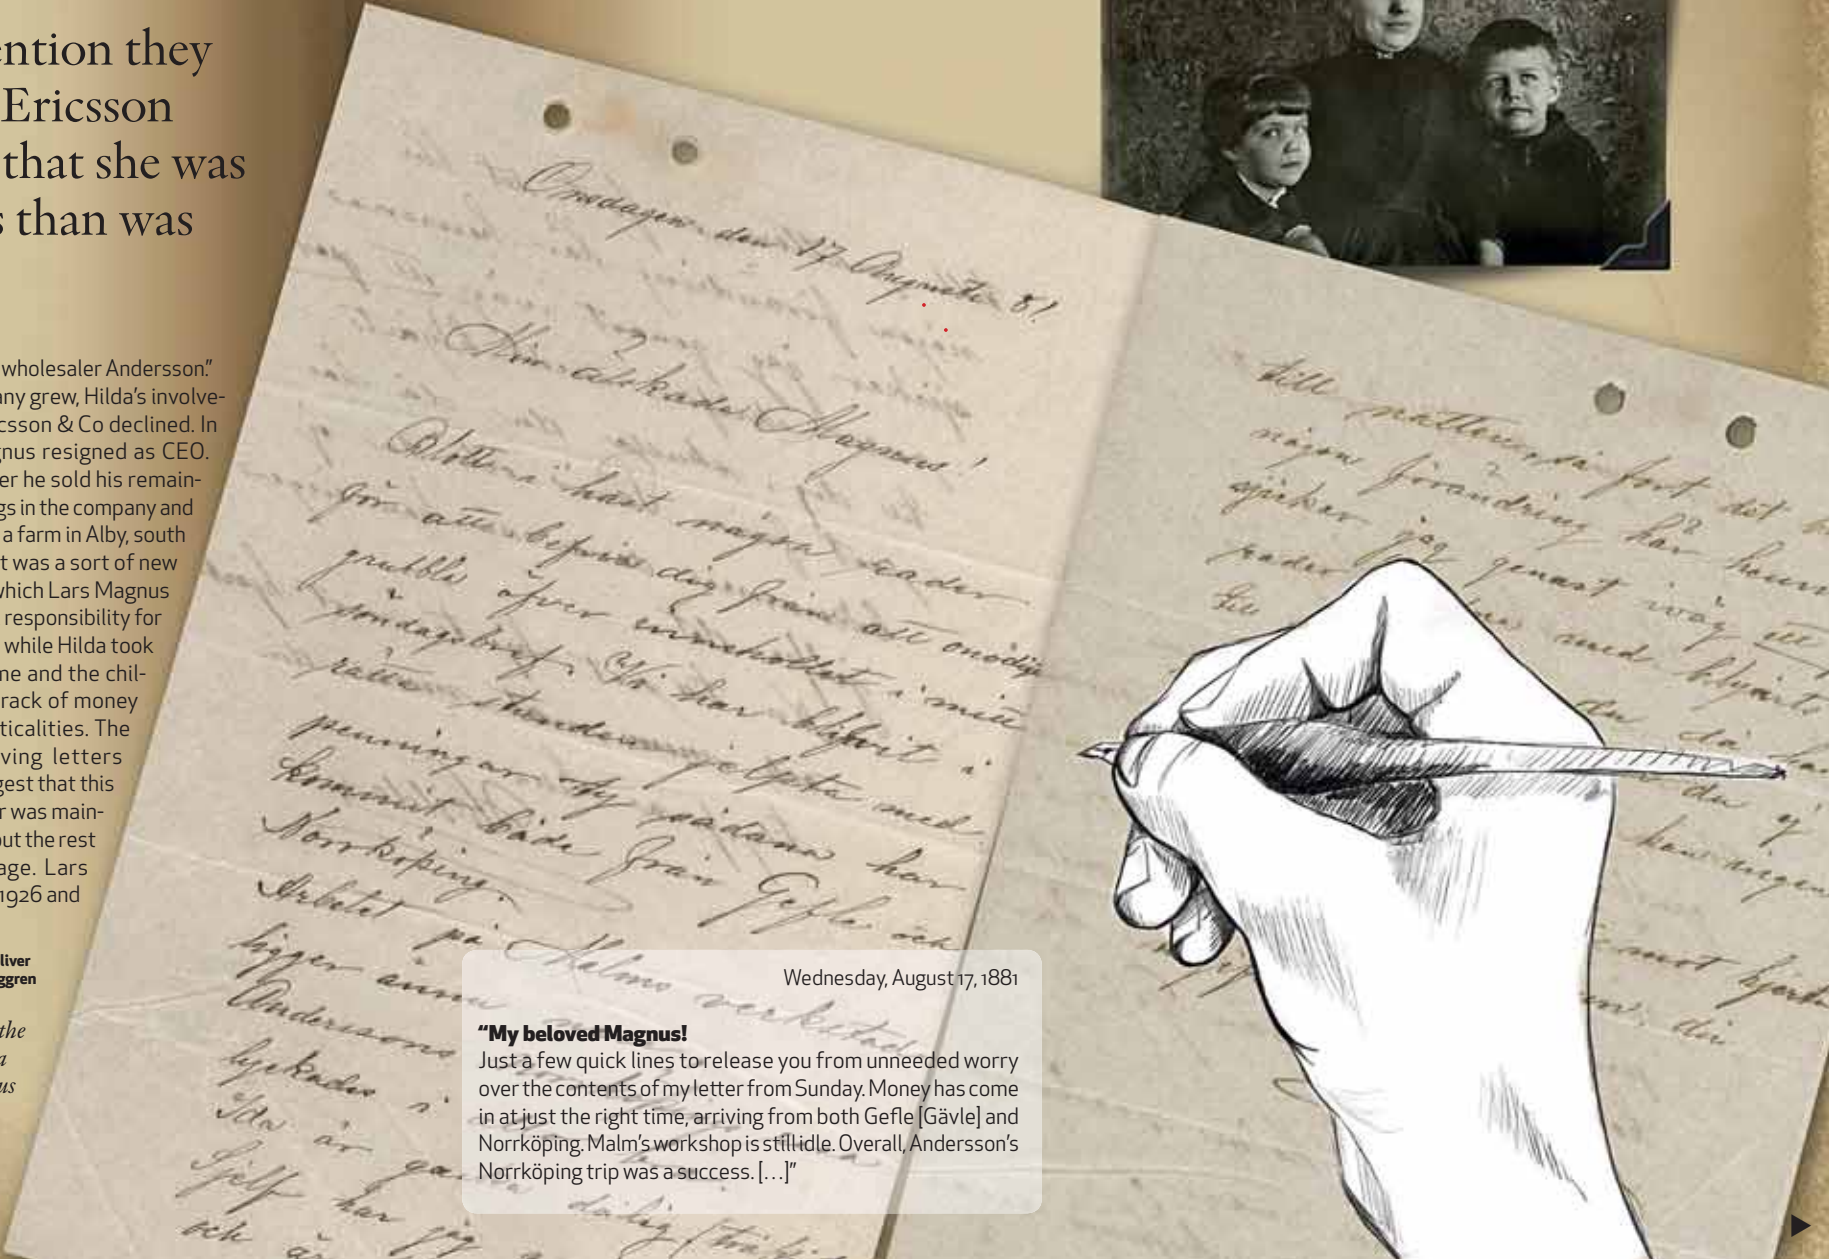 ention they
Ericsson
that she was
s than was
wholesaler Andersson."
any grew, Hilda's involve-
csson & Co declined. In
gnus resigned as CEO.
er he sold his remain-
gs in the company and
a farm in Alby, south
t was a sort of new
which Lars Magnus
responsibility for
while Hilda took
me and the chil-
rack of money
ticalities. The
ving letters
gest that this
r was main-
out the rest
age. Lars
1926 and
liver
ggren
the
a
us
Onsdagen den 17 Augusti 81
Min älskade Magnus!
Blott i hast några rader
för att befria dig från att onödigt
grubbla öfver innehållet i mitt
söndagsbref. Vi har blifvit i
rätta stunden hjelpta med
penningar ty sådana har
kommit både från Gefle och
Norrköping.
Arbetet på Malms verkstad
ligger ännu
Anderssons
lyckades i
Ida är
Sjelf har jag
och är
dålig
till natten, så fort det
någon förändring har
skickar jag genast iväg ett
rader
till med
du då
du ej
han ingen
emot
din
Wednesday, August 17, 1881
"My beloved Magnus!
Just a few quick lines to release you from unneeded worry
over the contents of my letter from Sunday. Money has come
in at just the right time, arriving from both Gefle [Gävle] and
Norrköping. Malm's workshop is still idle. Overall, Andersson's
Norrköping trip was a success. […]"